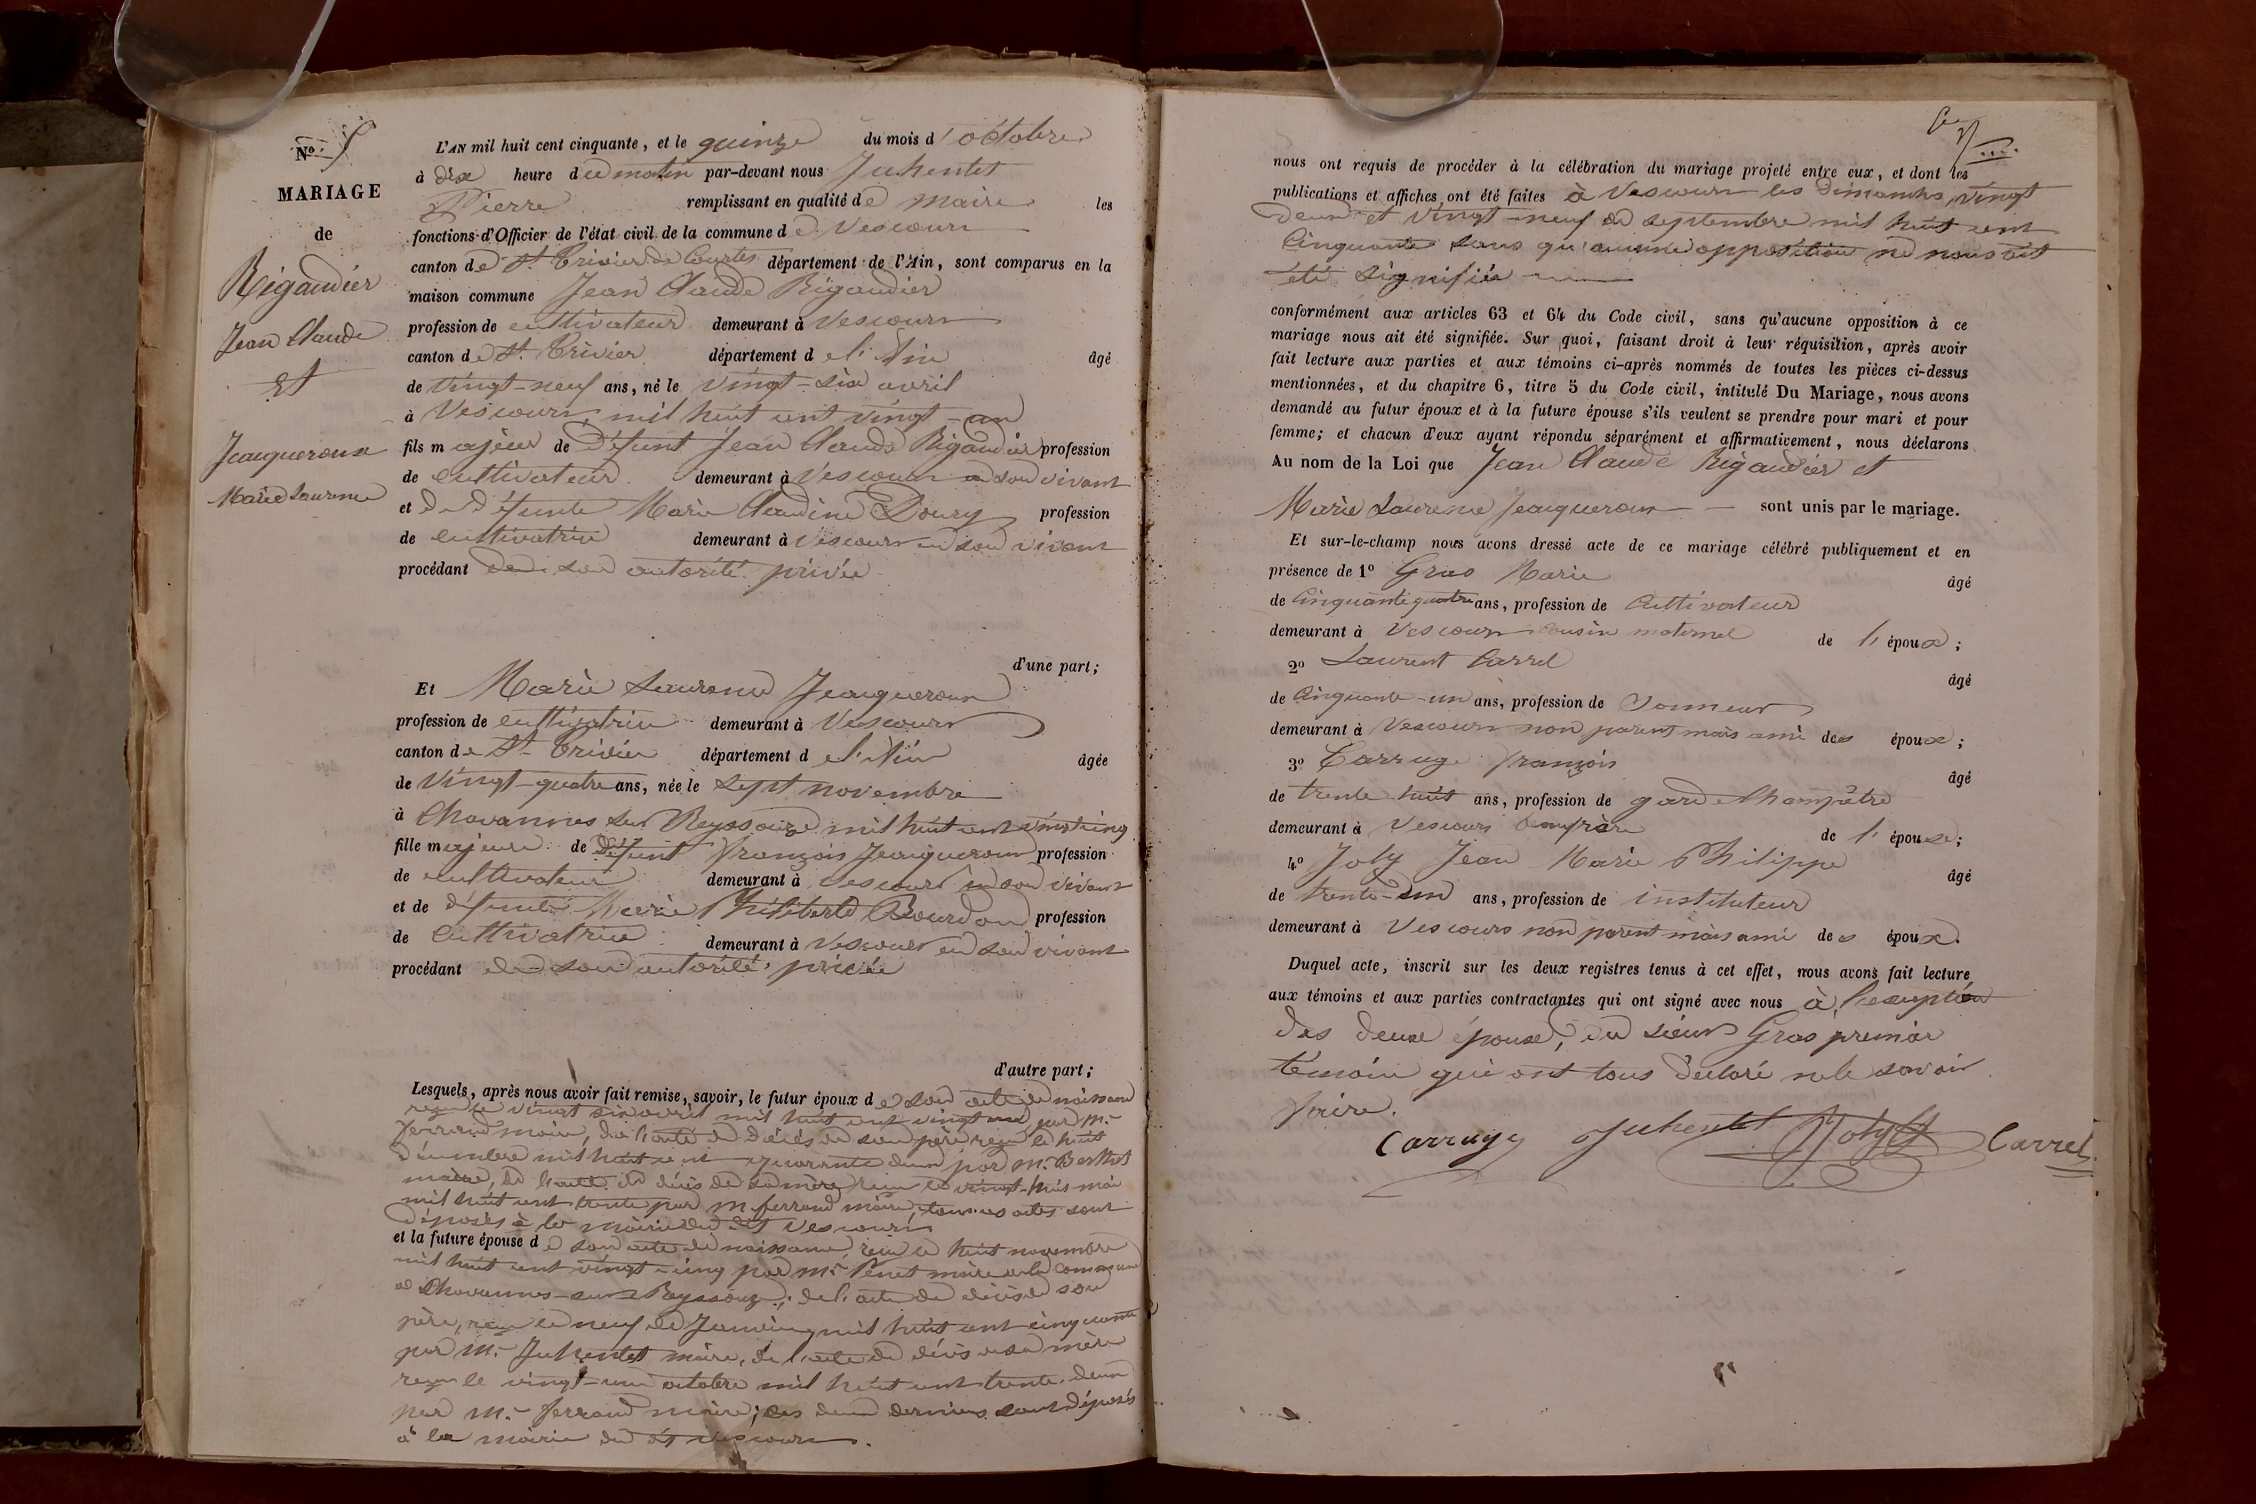 No. 5
MARIAGE
de
Rigaudier
Jean Claude
Et
Jeacqueroux
Marie Laurence
L'AN mil huit cent cinquante, et le quinze du mois d'octobre
à dix heure du matin par-devant nous Juhentet
Pierre remplissant en qualité de maire les
fonctions d'Officier de l'état civil de la commune de Vescours
canton de St. Trivier de Courtes département de l'Ain, sont comparus en la
maison commune Jean Claude Rigaudier
profession de cultivateur demeurant à Vescours
canton de St. Trivier département de l'Ain âgé
de vingt-neuf ans, né le vingt-six avril
à Vescours mil huit cent vingt-un
fils majeur de Défunt Jean Claude Rigaudier profession
de cultivateur demeurant à Vescours en son vivant
et de défunte Marie Claudine Doury profession
de cultivatrice demeurant à Vescours en son vivant
procédant de son autorité privée
d'une part;
Et Marie Laurence Jeacqueroux
profession de cultivatrice demeurant à Vescours
canton de St. Trivier département de l'Ain âgée
de vingt-quatre ans, née le sept novembre
à Chavannes sur Reyssouze mil huit cent vingt cinq
fille majeure de Défunt François Jeacqueroux profession
de cultivateur demeurant à Vescours en son vivant
et de défunte Marie Philiberte Bourdon profession
de cultivatrice demeurant à Vescours en son vivant
procédant de son autorité privée
d'autre part;
Lesquels, après nous avoir fait remise, savoir, le futur époux de son acte de naissance
reçu le vingt six avril mil huit cent vingt un, par Mr.
Ferrand maire, de l'acte de décès de son père reçu le huit
décembre mil huit cent quarante deux par Mr. Berthet
maire, de l'acte de décès de sa mère reçu le vingt-huit mai
mil huit cent trente par M. ferrand maire, tous ces actes sont
déposés à la mairie du dit Vescours
et la future épouse de son acte de naissance, reçu le huit novembre
mil huit cent vingt-cinq par Mr. Penet maire de la commune
de Chavannes-sur-Reyssouze; de l'acte de décès de son
père, reçu le neuf de Janvier mil huit cent cinquante
par Mr. Juhentet maire, de l'acte de décès de sa mère
reçu le vingt-un octobre mil huit cent trente-deux
par Mr. ferrand maire; ces deux derniers sont déposés
à la mairie du dit Vescours.
nous ont requis de procéder à la célébration du mariage projeté entre eux, et dont les
publications et affiches ont été faites à Vescours les dimanches vingt
deux et vingt-neuf de septembre mil huit cent
Cinquante sans qu'aucune opposition ne nous ait
été signifiée
conformément aux articles 63 et 64 du Code civil, sans qu'aucune opposition à ce
mariage nous ait été signifiée. Sur quoi, faisant droit à leur réquisition, après avoir
fait lecture aux parties et aux témoins ci-après nommés de toutes les pièces ci-dessus
mentionnées, et du chapitre 6, titre 5 du Code civil, intitulé Du Mariage, nous avons
demandé au futur époux et à la future épouse s'ils veulent se prendre pour mari et pour
femme; et chacun d'eux ayant répondu séparément et affirmativement, nous déclarons
Au nom de la Loi que Jean Claude Rigaudier et
Marie Laurence Jeacqueroux sont unis par le mariage.
Et sur-le-champ nous avons dressé acte de ce mariage célébré publiquement et en
présence de 1º Gras Marie âgé
de Cinquante quatre ans, profession de Cultivateur
demeurant à Vescours cousin maternel de l'époux;
2º Laurent Carrel âgé
de Cinquante-un ans, profession de Sonneur
demeurant à Vescours non parent mais ami des époux;
3º Carruge François âgé
de trente huit ans, profession de garde Champêtre
demeurant à Vescours beaufrère de l'épouse;
4º Joly Jean Marie Philippe âgé
de trente-un ans, profession de instituteur
demeurant à Vescours non parent mais ami des époux.
Duquel acte, inscrit sur les deux registres tenus à cet effet, nous avons fait lecture
aux témoins et aux parties contractantes qui ont signé avec nous à l'exception
des deux époux, du sieur Gras premier
témoin qui ont tous déclaré ne le savoir
faire.
Carruge Juhentet Joly Carrel